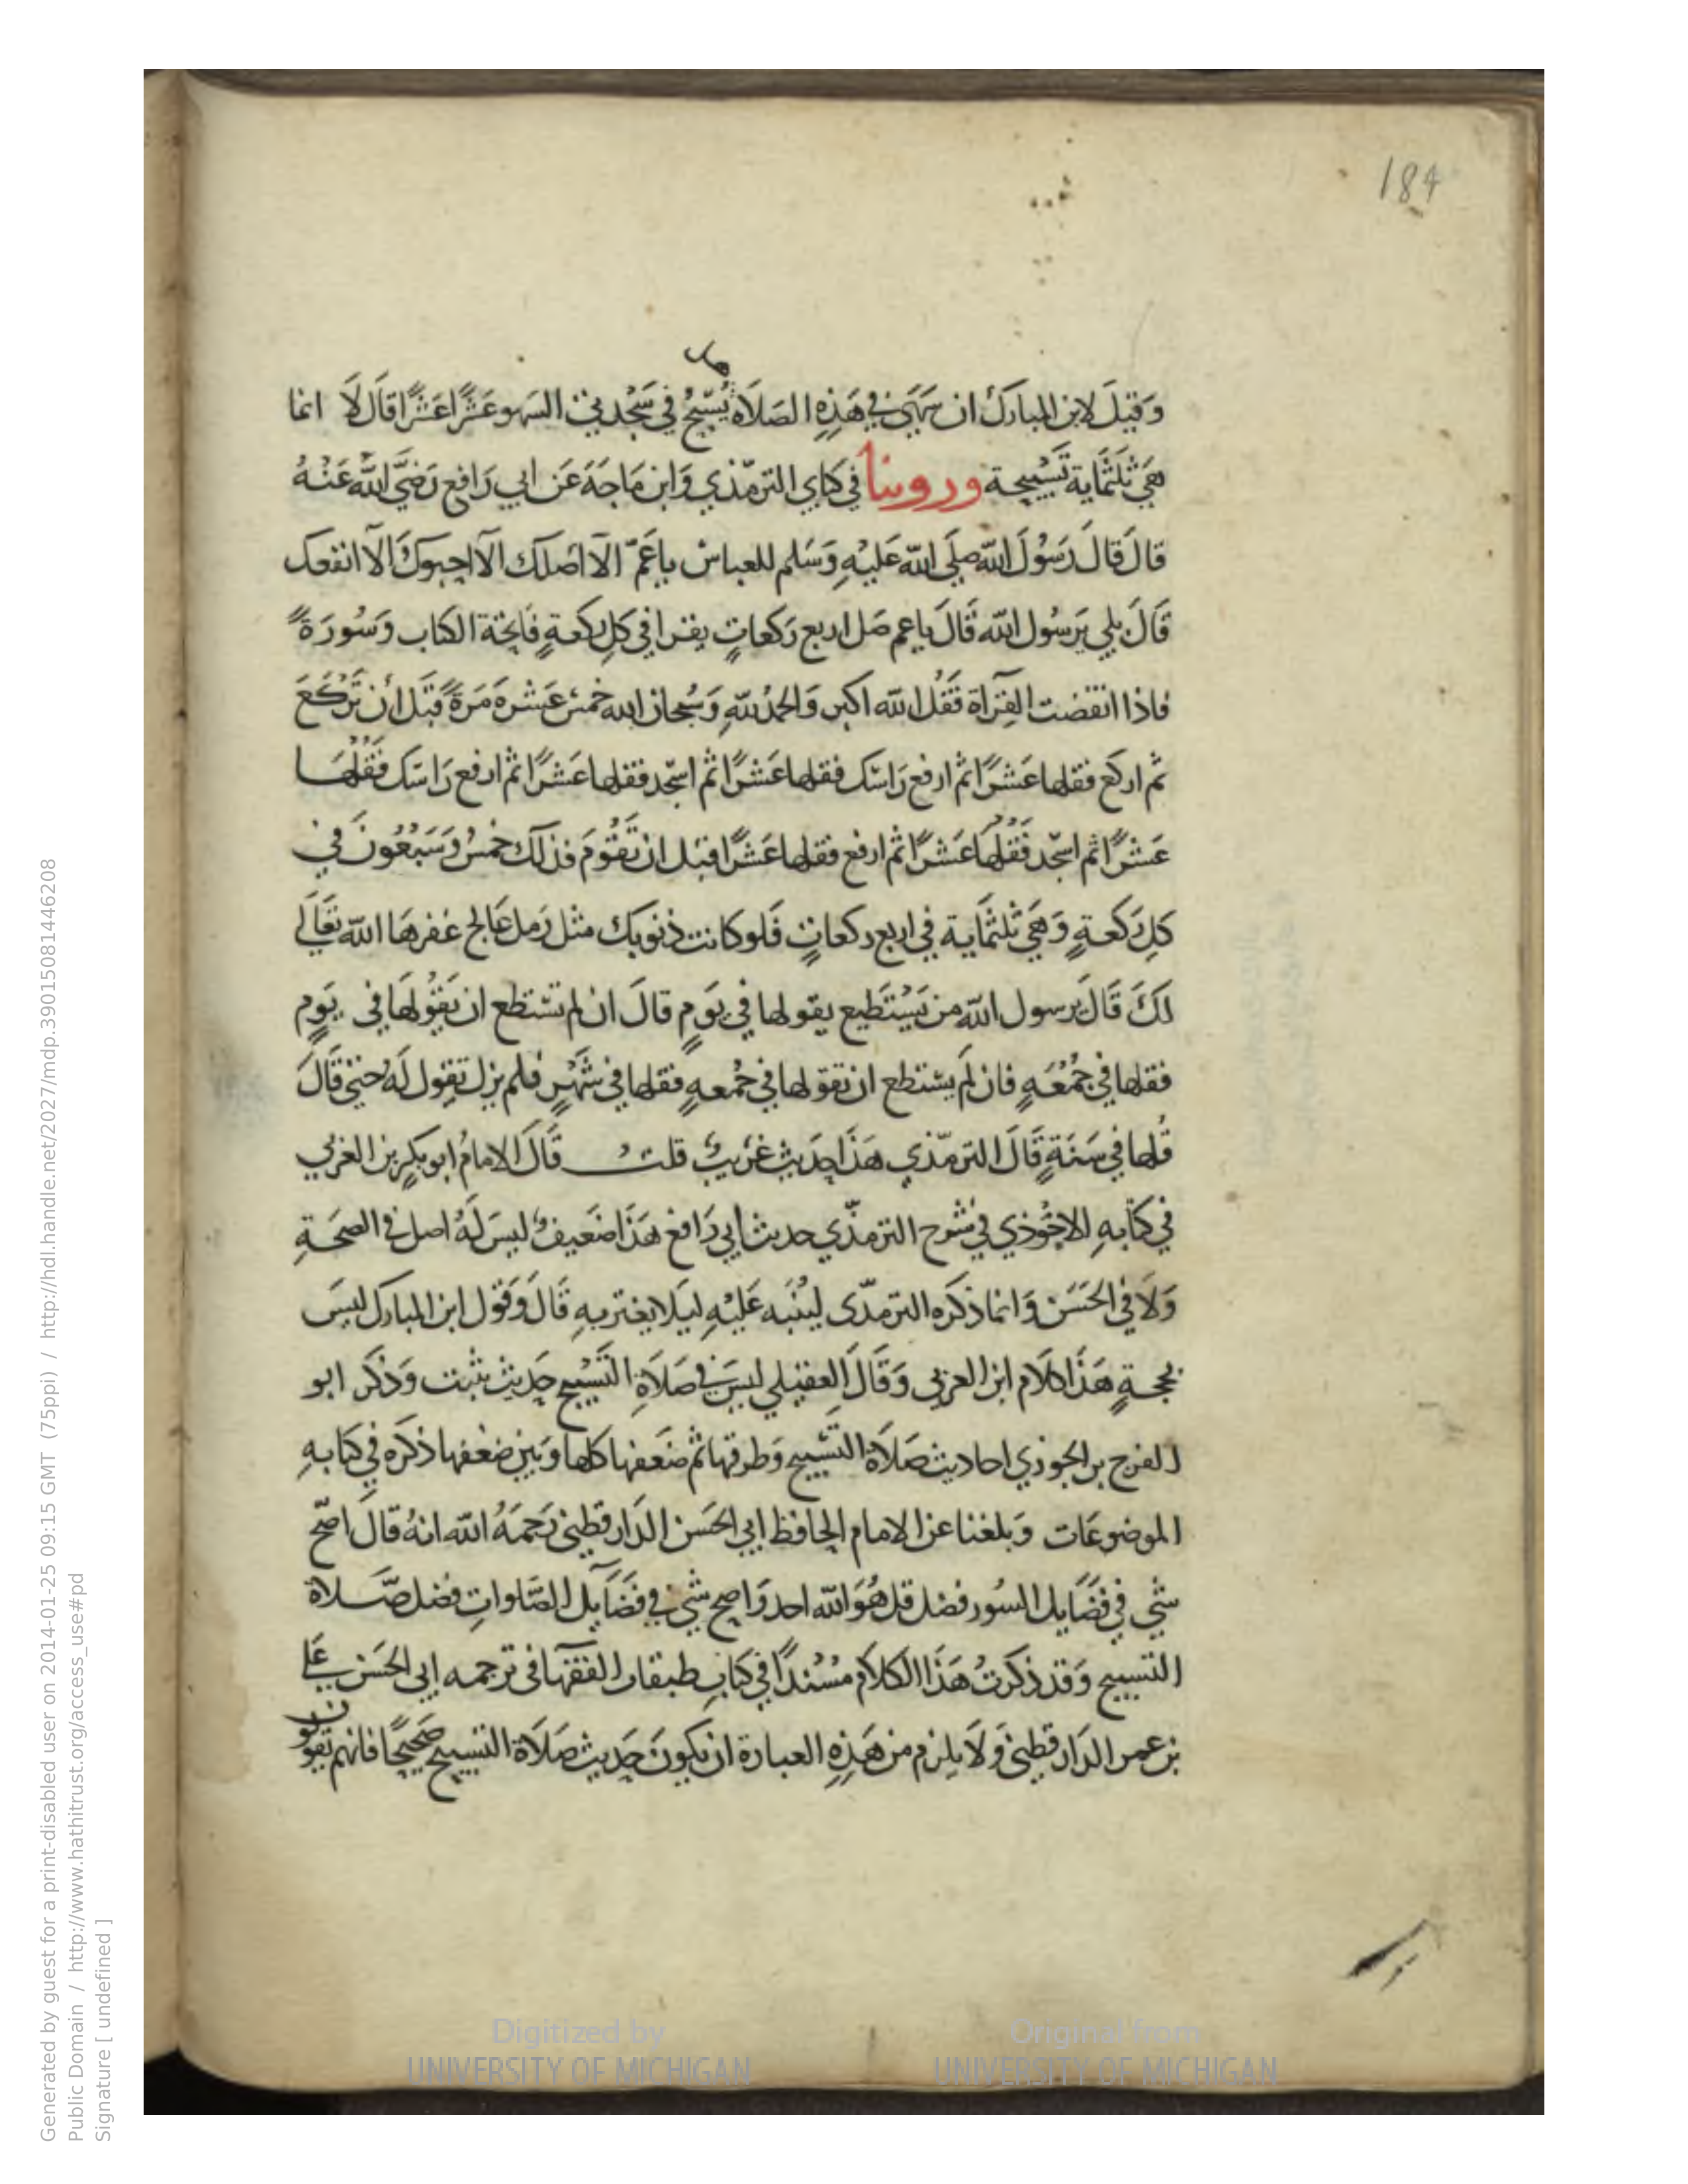 184
هل
وَقيلَ لابن المبارك ان سَهَى في هَذِهِ الصَلَاة يُسَبّحُ في سَجْدتي السَهو عَشْرًا عَشْرًا قَالَ لَا انما
هيَ ثلثماية تَسْبيحة وروينا في كتابي الترمّذي وَابن مَاجَهَ عَن ابي رَافع رَضيَ اللّه عَنْهُ
قالَ قالَ رَسُولَ اللّه صلى اللّه عَلَيْهِ وَسَلم للعباس ياعَمّ الَا اصَلك الَا احبوكَ الَا انفعك
قَالَ بلي يرَسُول اللّه قَالَ ياعم صَل اربع رَكعاتٍ يقرا في كل ركعةٍ فَاتِحة الكتاب وَسُورَةً
فاذا انقضت القِرَاة فَقُل اللّه اكبر وَالحمْد للّهِ وَسُبحان الله خمْسَ عَشْرَه مَرَةً قَبْلَ أن تَرْكَعَ
ثم اركع فقلها عَشْرًا ثم ارفع رَاسَك فقلها عَشْرًا ثم اسجد فقلها عَشْرًا ثم ارفع رَاسَك فَقُلْهَا
عَشْرًا ثم اسجد فَقُلْها عَشْرًا ثم ارفع فقلها عَشْرًا قبل ان تَقُوْمَ فذلك خمسٌ وَسَبْعُونَ في
كل رَكعةٍ وَهيَ ثلثماية في اربع ركعاتٍ فَلو كانت ذنوبك مثل رَمل عَالج غفرهَا اللّه تعَالى
لكَ قَالَ يرسول اللّه من يَسْتَطيع يقولها في يَومٍ قالَ ان لم تستطع ان تَقُولهَا في يَومٍ
فقلها في جمْعَهٍ فان لَم يستطع ان تقولها في جمْعهٍ فقلها في شَهْرٍ فلم يزل تقول لَهُ حتي قَالَ
قُلها في سَنَةٍ قَالَ الترمّذي هَذَا حَديث غرَيبٌ قلت قَالَ الامامُ ابو بكرِ بن العزبي
في كتَابهِ الاحْوذي في شَرح الترمّذي حديث ابي رَافع هَذَا ضَعيفٌ ليسَ لَهُ اصل في الصحَةِ
وَلَا في الحَسَن وَانما ذكره الترمّدى ليُنَبَه عَلَيْهِ ليَلا يغتر بهِ قَالَ وَقول ابن المبارك ليسَ
بحجةٍ هَذَا كلَام ابن العربى وَقَالَ العقيلي ليسَ في صَلَاة التَسْبيح حَديث يثبت وَذكر ابو
الفرج بن الجوزي احاديث صَلَاة التسْبيح وَطرقها ثم ضَعفها كلها وَبين ضعفها ذكره في كتابهِ
الموضوعَات وَبلغنا عن الامام الحافظ ابي الحَسَن الدَار قطنى رَحمَهُ اللّه انهُ قالَ اصَحّ
شي في فَضَايل السُور فضل قل هُوَ اللّه احد وَاصح شي في فضَايل الصَلواتِ فضل صَلاة
التسبيح وَقد ذكرتُ هَذَا الكلَام مسْندًا في كتاب طبقات الفقهآ فى ترجمه ابي الحَسَن عَلي
بن عمر الدَار قطنى وَلَا يلزم من هَذِهِ العبارة ان يكونَ حَديث صَلَاة التسبيح صَحيحًا فانهم يَقولون